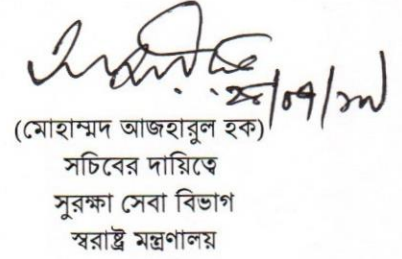 (মোহাম্মদ আজহারুল হক)
সচিবের দায়িত্বে
সুরক্ষা সেবা বিভাগ
স্বরাষ্ট্র মন্ত্রণালয়